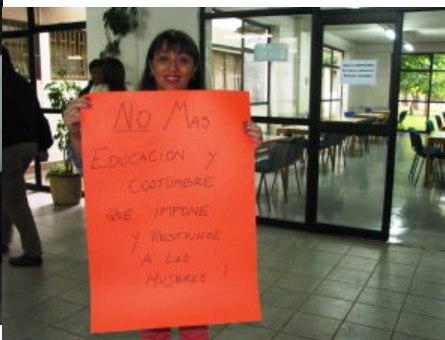 NO MAS
EDUCACIÓN Y
COSTUMBRE
QUE IMPONE
Y RESTRINGE
A LAS
MUJERES!